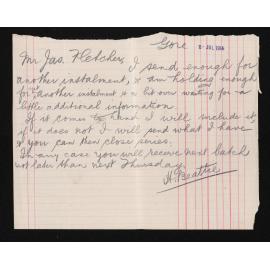 Gore
2 JUL 1914
Mr Jas. Fletcher,
I send enough for
another instalment, & am holding enough
for another instalment & a bit over waiting for a
little additional information.
If it comes to hand I will include it,
if it does not I will send what I have
& you can then close series.
In any case you will receive next batch
not later than next Thursday.
H. Beattie